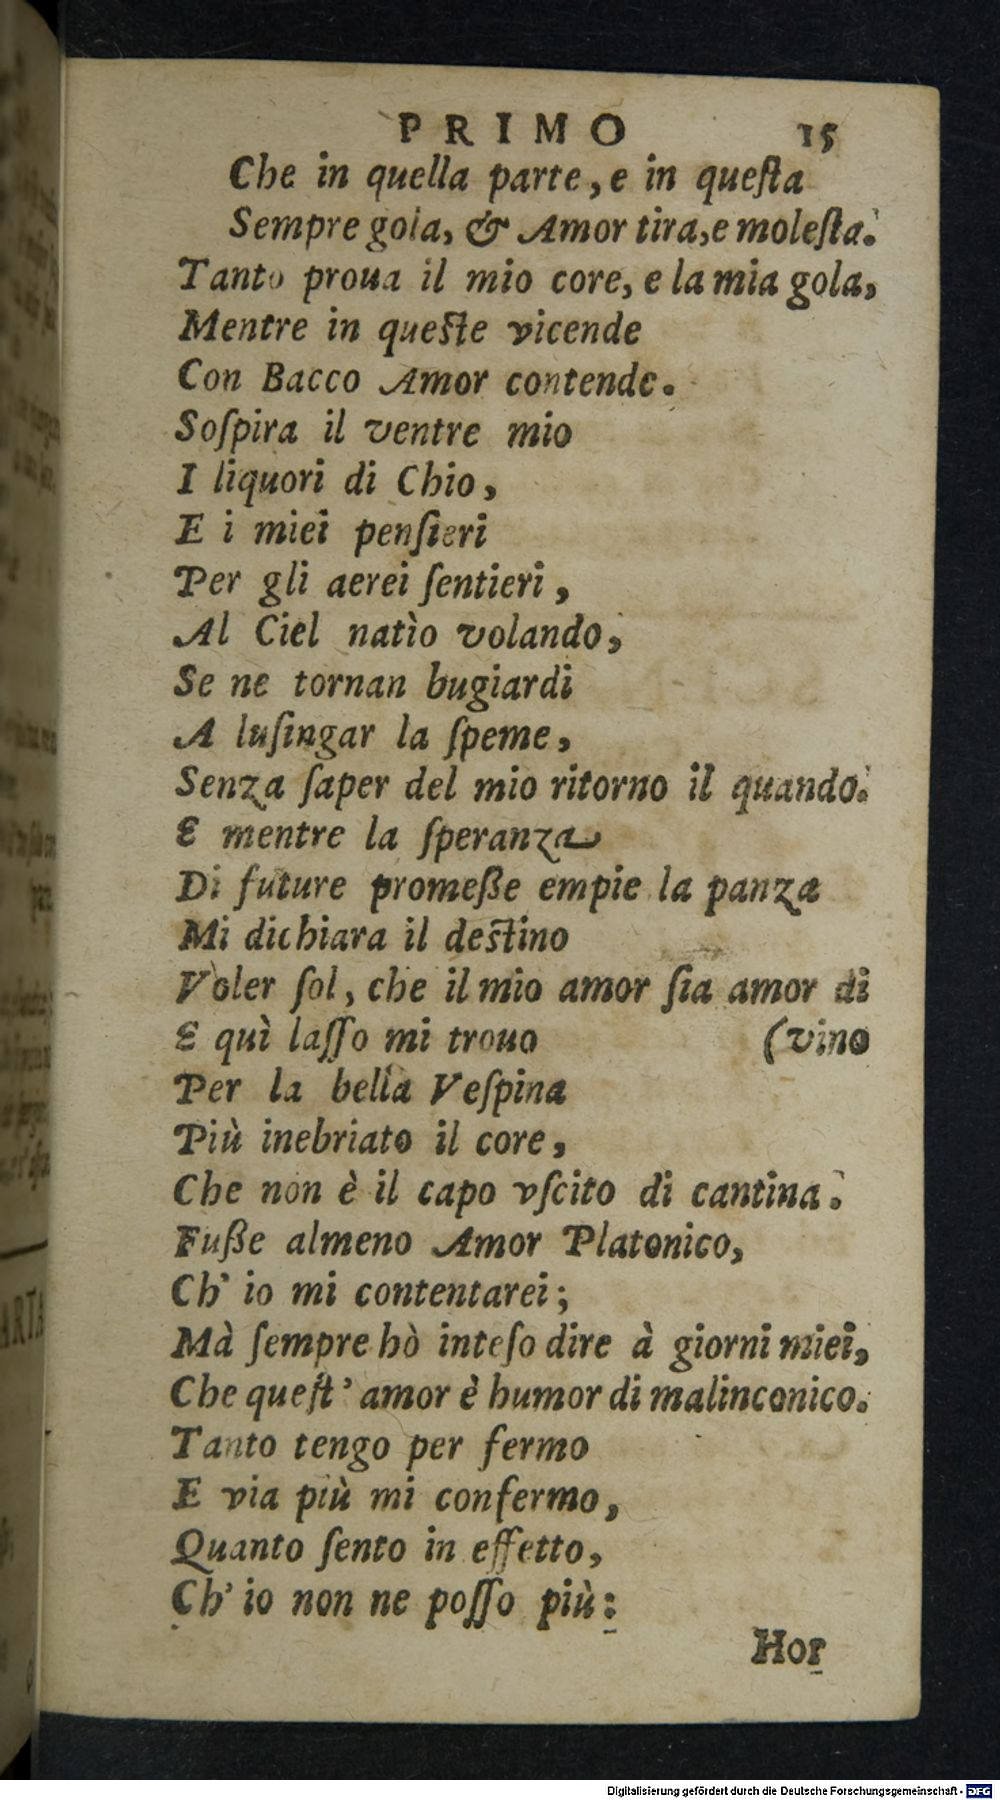 PRIMO 15
Che in quella parte, e in queſta
Sempre gola, & Amor tira, e moleſta.
Tanto proua il mio core, e la mia gola,
Mentre in queſte vicende
Con Bacco Amor contende.
Soſpira il ventre mio
I liquori di Chio,
E i miei penſieri
Per gli aerei ſentieri,
Al Ciel natìo volando,
Se ne tornan bugiardi
A luſingar la ſpeme,
Senza ſaper del mio ritorno il quando.
E mentre la ſperanza
Di future promeße empie la panza
Mi dichiara il deſtino
Voler ſol, che il mio amor ſia amor di
E quì laſſo mi trouo (vino
Per la bella Veſpina
Più inebriato il core,
Che non è il capo vſcito di cantina.
Fuße almeno Amor Platonico,
Ch' io mi contentarei;
Mà ſempre hò inteſo dire à giorni miei,
Che queſt' amor è humor di malinconico.
Tanto tengo per fermo
E via più mi confermo,
Quanto ſento in effetto,
Ch' io non ne poſſo più:
Hor
Digitalisierung gefördert durch die Deutsche Forschungsgemeinschaft - DFG